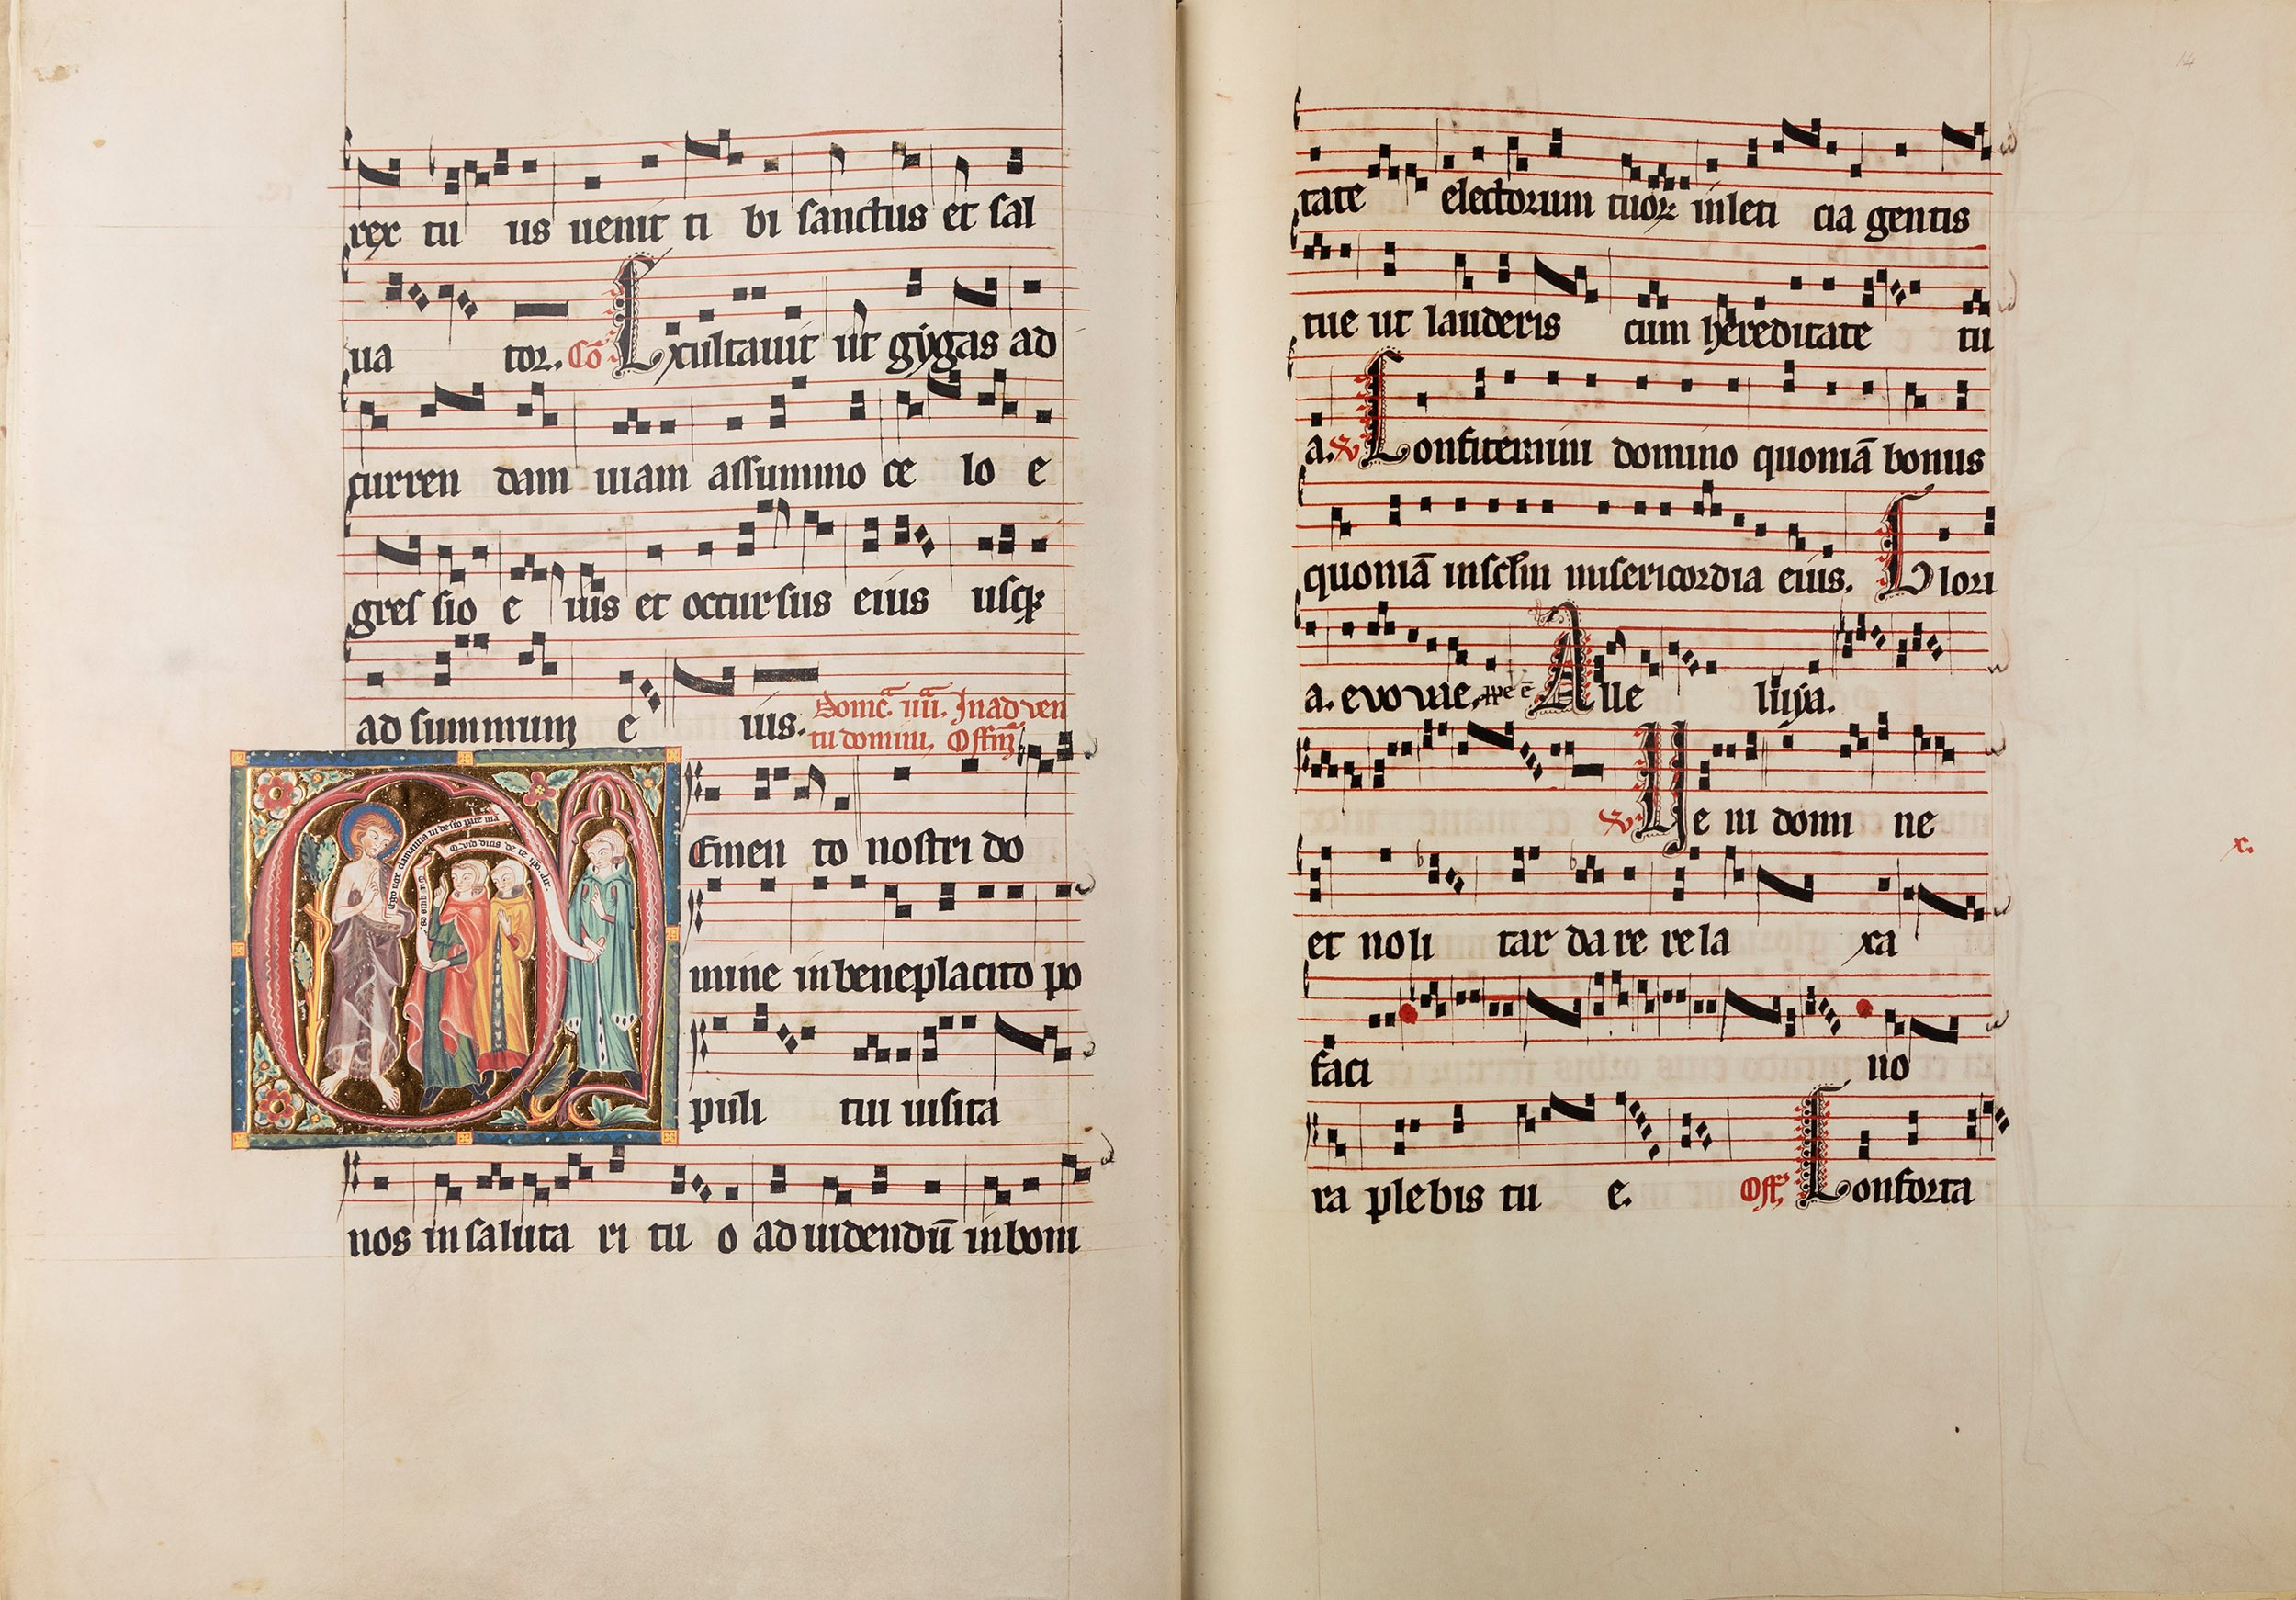 rex tu us uenit ti bi sanctus et sal
ua tor. Cō Exultauit ut gygas ad
curren dam uiam assummo ce lo e
gres sio e iuis et occursus eius usq;
ad summum e ius.
Domc̄. iiii. In ad ven
tu domini. Offm̄
Ego uox clamantis in deserto parate uiā
Quid dicis de te ipo. dic.
Memen to nostri do
mine in beneplacito po
puli tui uisita
nos in saluta ri tu o ad uidendū in boni
14
tate electorum tuoꝝ in leti cia gentis
tue ut lauderis cum hereditate tu
a. V Confitemini domino quoniā bonus
quoniā in sclm misericordia eius. Glori
a. evovae. Alle luya.
V Ue ni domi ne
x.
et noli tar da re re la xa
faci no
ra plebis tu e. Off. Conforta